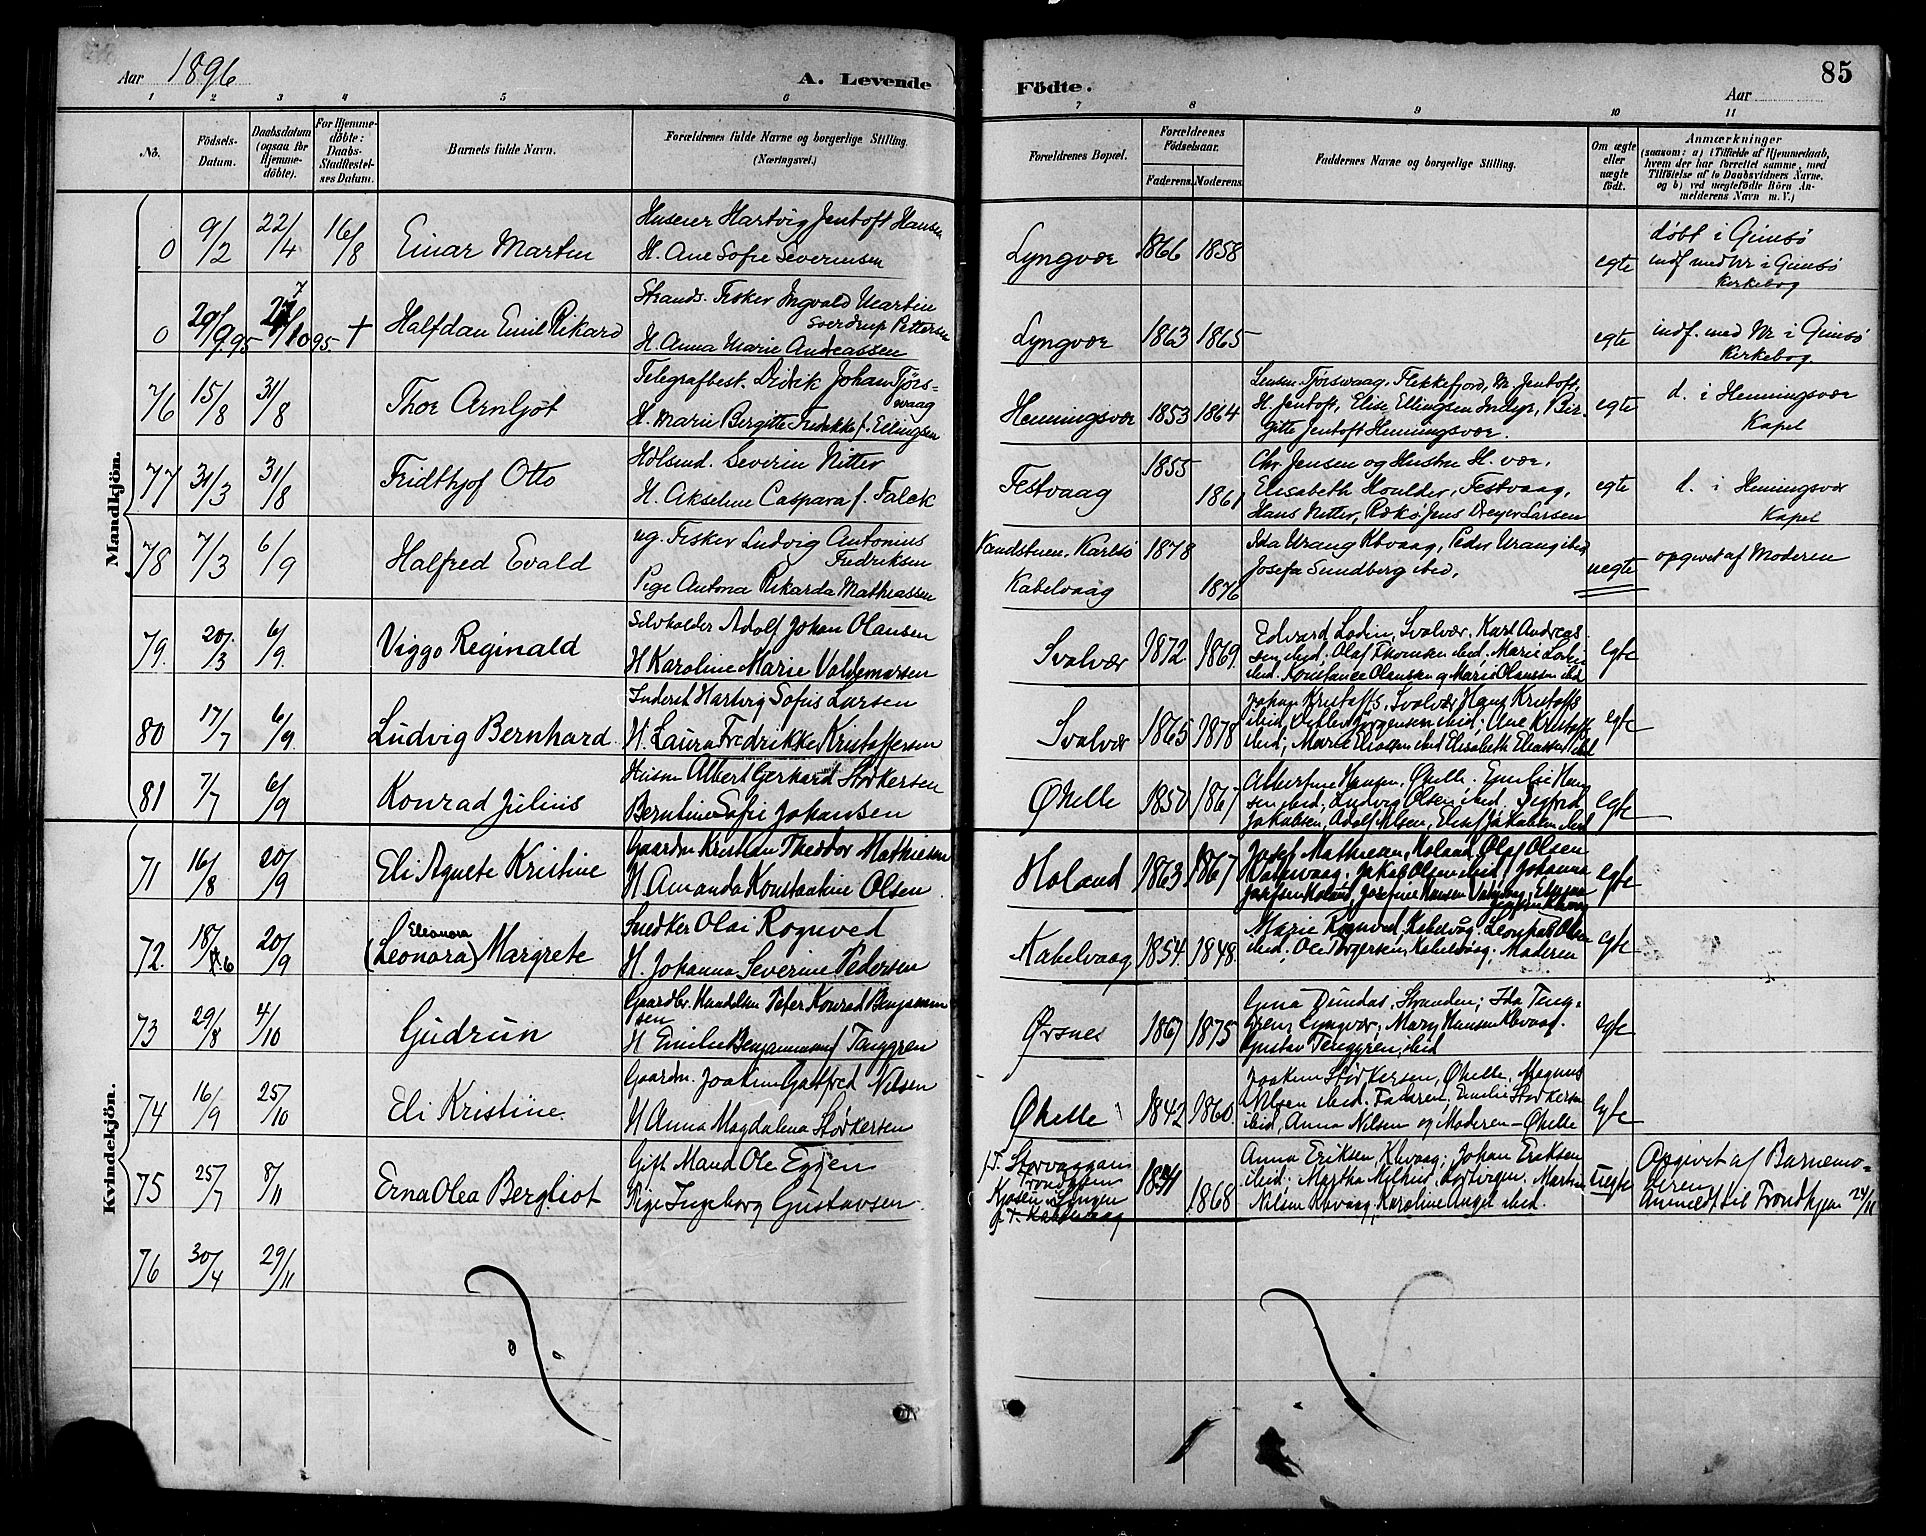 Aar 1896
A. Levende
Fødte.
85
Aar
1 2 3 4 5 6 7 8 9 10 11
No.
Födsels-Datum.
Daabsdatum (ogsaa for Hjemmedöbte).
For Hjemmedöbte: Daabs-Stadfæstelses Datum.
Barnets fulde Navn.
Forældrenes fulde Navne og borgerlige Stilling. (Næringsvei.)
Forældrenes Bopæl.
Forældrenes Födselsaar.
Faderens. Moderens.
Faddernes Navne og borgerlige Stilling.
Om ægte eller uægte født.
Anmærkninger
(saasom: a) i Tilfælde af Hjemmedaab,
hvem der har forrettet samme, med
Tilföielse af to Daabsvidners Navne.
og b) ved uægtefödte Börn Anmelderens Navn m. V.)
Mandkjön.
0 9/2 22/4 16/8 Einar Martin
Huseier Hartvig Jentoft Hansen
H. Ane Sofie Severinsen
Lyngvær 1866 1858 egte
døbt i Gimsø
indf. med Nr i Gimsø
Kirkebog
0 29/9 95 27/10 95 + Halfdan Emil Rikard
Strands. Fisker Ingvald Martin
Sverdrup Pettersen
H. Anna Marie Andreassen
Lyngvær 1863 1865 egte
indf. med Nr. i Gimsø
Kirkebog
76 15/8 31/8 Thor Arnljót
Telegrafbest. Didik Johan Tjörs-
vaag
H. Marie Birgitte Fredrikke f. Ellingsen
Henningsvær 1853 1864
Tjörsvaag, Flekkefjord, M. Jentoft,
H. Jentoft, Elise Ellingsen Indyr, Bir-
gitte Jentoft Henningsvær.
egte
d. i Henningsvær
Kapel
77 31/3 31/8 Fridthjof Otto
Severin Nitter
H. Akseline Caspara f. Falck
Festvaag 1855 1861
Chr. Jensen og Hustru H. vær,
Elisabeth Houlder, Festvaag,
Hans Nitter, Jens Dreyer Larsen
egte
d. i Henningsvær
Kapel
78 7/3 6/9 Halfred Evald
ug. Fisker Ludvig Antonius
Fredriksen
Pige Antona Rikarda Mathiassen
Karlsö
Kabelvaag 1878 1876
Ida Urang Kbvaag, Peder Urang ibid
Josefa Sundberg ibid,
uegte
opgivet af Moderen
79. 20/3 6/9. Viggo Reginald
Selvholder Adolf Johan Olausen
H Karoline Marie Valdemarsen
Svolvær 1872. 1869.
Edvard Lodin, Svolvær, Karl Andreas-
sen ibid, Olaf Thomsen ibid. Marie Lodin
ibid. Konstance Olaussen og Marie Olaussen ibid
egte
80 17/7 6/9. Ludvig Bernhard
Inderst Hartvig Sofus Larsen
H. Laura Fredrikke Kristoffersen
Svolvær 1865 1878
Johan Kristoffs, Svolvær, Hans Kristoffs
ibid, Detlev Jörgensen ibid; Ane Kristoffs
ibid; Marie Eliassen ibid Elisabeth Eliassen ibid
egte
81 7/7 6/9 Konrad Julius
Husm Albert Gerhard Störkersen
Berntine Sofie Johansen
Øhelle 1850 1867
Albertine Hansen, Øhelle. Emilie Han-
sen ibid; Ludvig Olsen ibid. Sigfred
Jakobsen, Adolf Nilsen, Elisef Jakobsen ibid
egte
Kvindekjön.
71 16/8 20/9 Eli Agnete Kristine
Gaardm Kristian Theodor Mathiesen
H Amanda Konstantine Olsen
Holand 1863 1867
Josef Mathiesen, Holand, Olaf Olsen
Jakob Olsen ibid, Johanna
Josefsen Holand, Josefine Hansen
egte
72. 18/6 20/9 (Leonora) Eleonora Margrete
Snedker Olai Rognved
H. Johanna Severine Pedersen
Kabelvaag 1854. 1848.
Marie Rognved, Kabelvåg, Leonhard Olsen
ibid, Ole Torgersen, Kabelvåag; Moderen
egte
73 29/8 4/10 Gudrun
Gaardbr. Handelsm Peter Konrad Benjamin-
sen
H Emilie Benjaminsen f Tenggren
Ørsnes 1867 1875
Gina Dundas, Stranden; Ida Teng-
gren, Lyngvær, Mary Hansen Kbvaag.
Gustav Tenggren, ibid
egte
74 16/9 25/10 Eli Kristine
Gaardm. Joakim Gotfred Nilsen
H Anna Magdalena Störkersen
Øhelle 1842 1860.
Joakim Störkersen, Øhelle, Magnus
Nilsen ibid. Faderen, Emilie Störkersen
ibid, Anna Nilsen og Moderen - Øhelle
egte
75 25/7 8/11 Erna Olea Bergliot
Gift Mand Ole Eggen
Pige Ingeborg Gustavsen
Trondhjem
Kjosen i Lyngen
p. T. Kabelvaag 1841 1868
Anna Eriksen Kbvaag; Johan Eriksen
ibid; Martha Mythus, Martin
Nilsen Kbvaag, Karoline Angel ibid.
uegte
Opgivet af Barnemo-
deren
anmeldt til Trondhjem 24/11
76 30/4 29/11